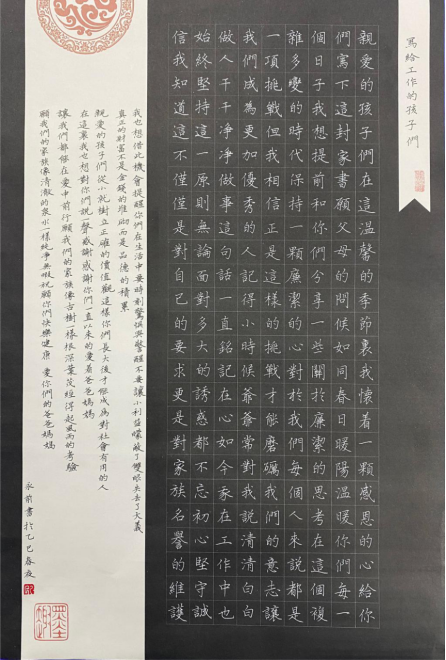 寫給工作的孩子們
親愛的孩子們在這溫馨的季節裏我懷着一顆感恩的心給你
們寫下這封家書願父母的問候如同春日暖陽溫暖你們每一
個日子我想提前和你們分享一些關於廉潔的思考在這個複
雜多變的時代保持一顆廉潔的心對於我們每個人來說都是
一項挑戰但我相信正是這樣的挑戰才能磨礪我們的意志讓
我們成為更加優秀的人記得小時候爺爺常對我說清清白白
做人干干淨淨做事這句話一直銘記在心如今家在工作中也
始終堅持這一原則無論面對多大的誘惑都不忘初心堅守誠
信我知道這不僅僅是對自己的要求更是對家族名譽的維護
我也想借此機會提醒你們在生活中要時刻警惕與警醒不要讓小利益矇蔽了雙眼失去了大義
真正的財富不是金錢的堆砌而是品德的積累
親愛的孩子們從小就樹立正確的價值觀這樣你們長大後才能成為對社會有用的人
在這裏我也想對你們說一聲感謝感謝你們一直以來的愛着爸爸媽媽
讓我們都能在愛中前行願我們的家族像古樹一樣根深葉茂經得起風雨的考驗
願我們的家族像清澈的泉水一樣純淨無暇祝願你們快樂健康 愛你們的爸爸媽媽
永前書於乙巳春夜